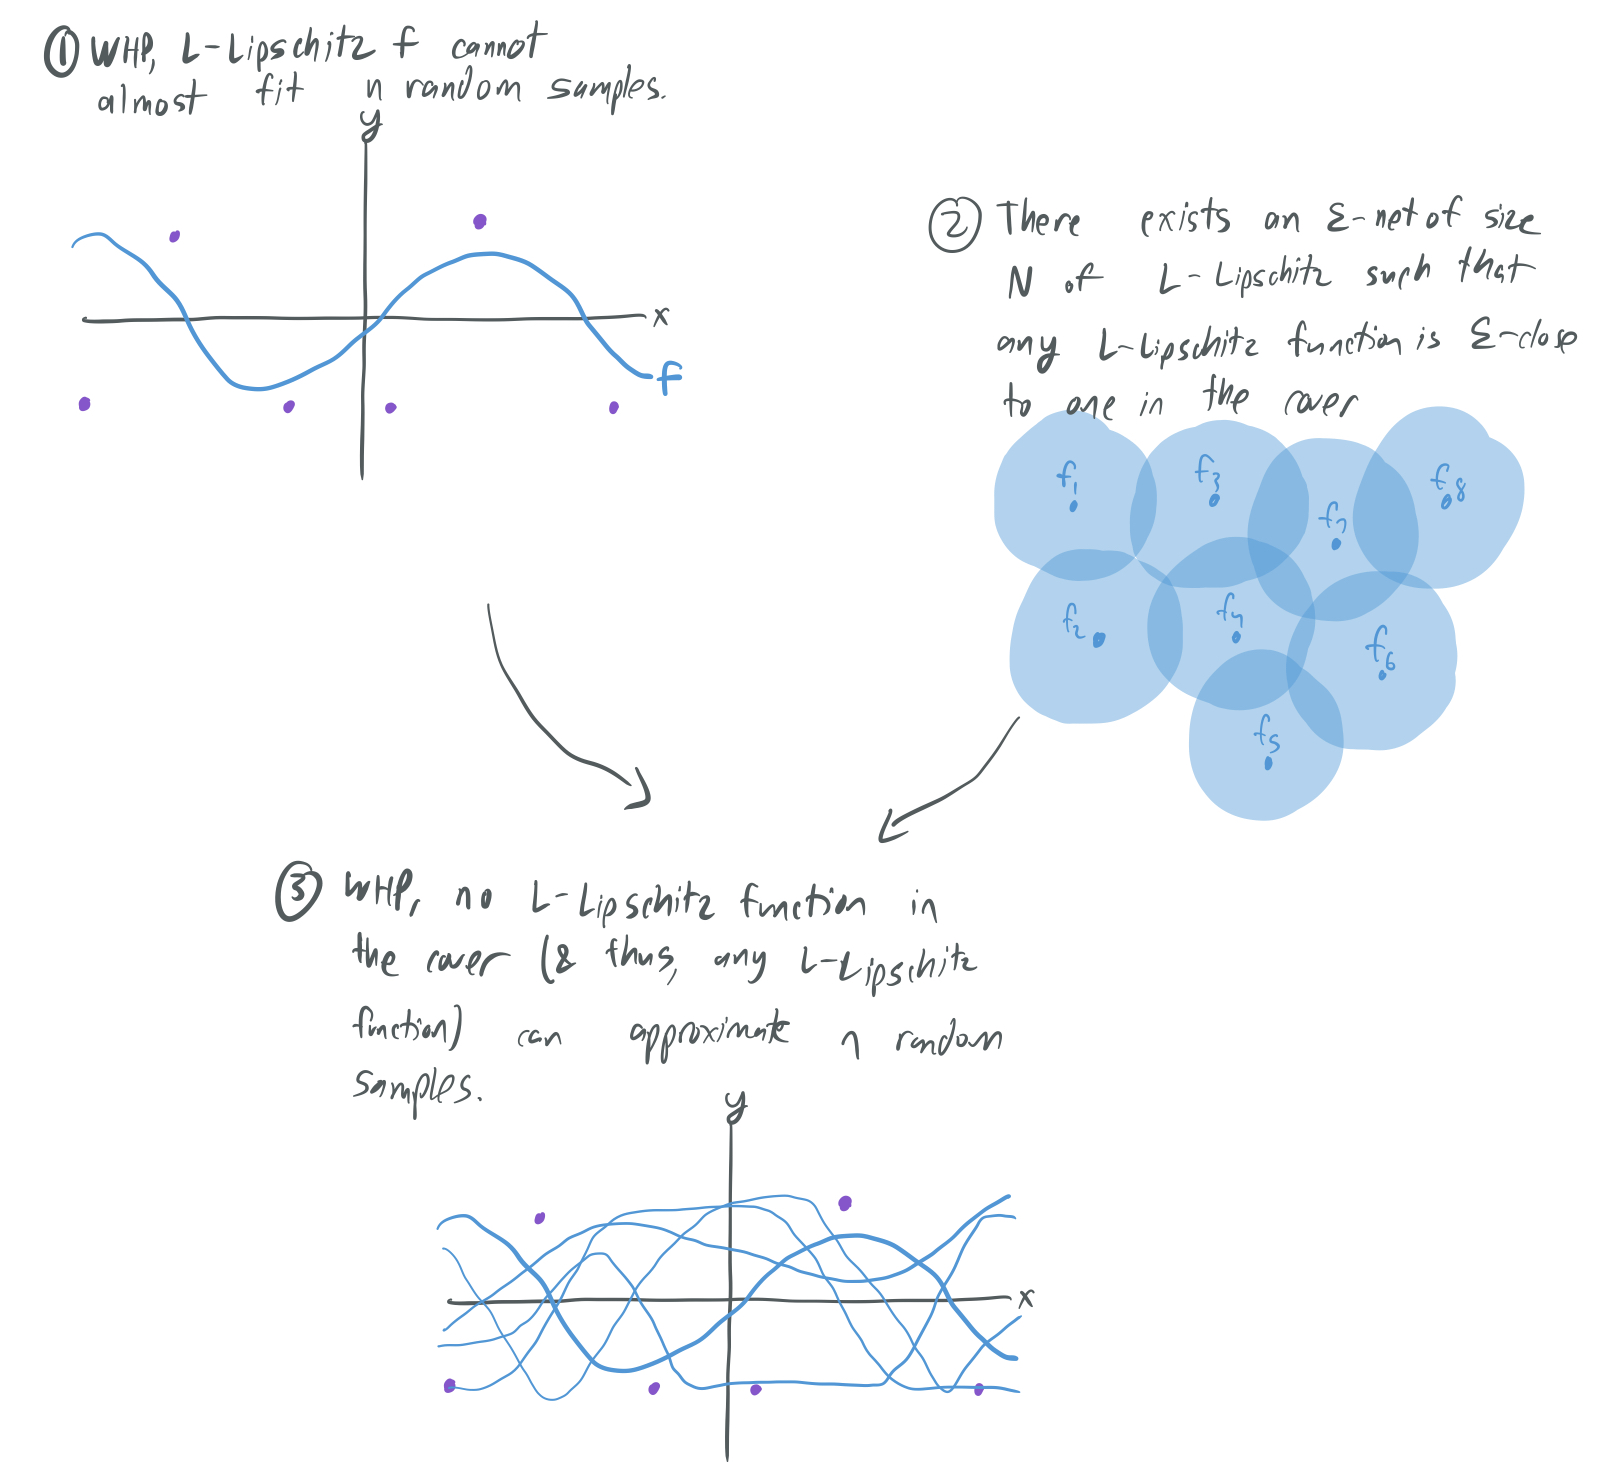 ① WHP, L-Lipschitz f cannot
almost fit n random samples.
y
x
f
② There exists an ε-net of size
N of L-Lipschitz such that
any L-Lipschitz function is ε-close
to one in the cover
f₁
f₃
f₇
f₈
f₂
f₄
f₆
f₅
③ WHP, no L-Lipschitz function in
the cover (& thus, any L-Lipschitz
function) can approximate n random
samples.
y
x